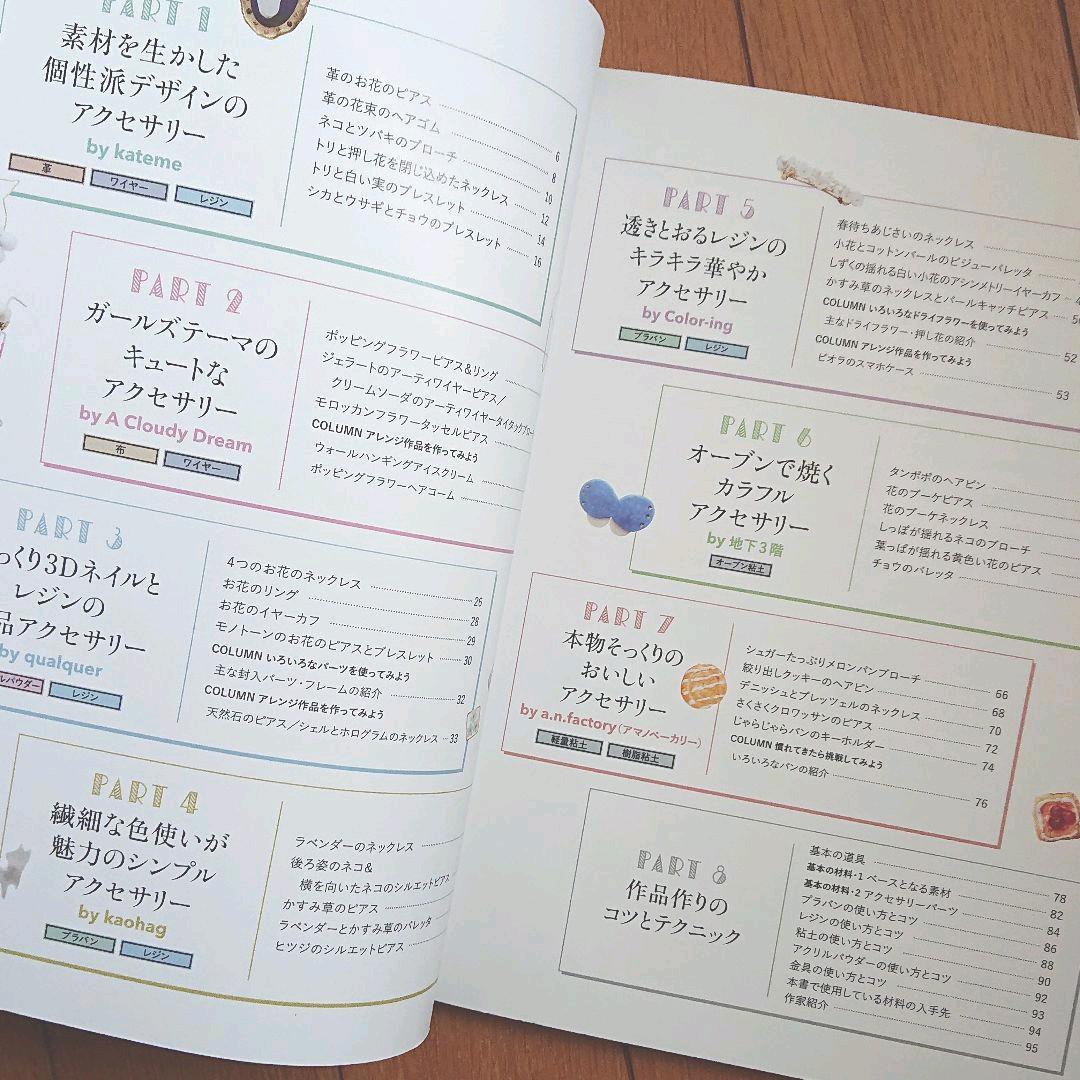 PART 1
素材を生かした
個性派デザインの
アクセサリー
by kateme
革
ワイヤー
レジン
革のお花のピアス
革の花束のヘアゴム 6
ネコとツバキのブローチ 8
トリと押し花を閉じ込めたネックレス 10
トリと白い実のブレスレット 12
シカとウサギとチョウのブレスレット 14
16
PART 2
ガールズテーマの
キュートな
アクセサリー
by A Cloudy Dream
布
ワイヤー
ポッピングフラワーピアス&リング
ジェラートのアーティワイヤーピアス/
クリームソーダのアーティワイヤータイタックブロー
モロッカンフラワータッセルピアス
COLUMN アレンジ作品を作ってみよう
ウォールハンギングアイスクリーム
ポッピングフラワーヘアコーム
PART 3
っくり3Dネイルと
レジンの
品アクセサリー
by qualquer
ルパウダー
レジン
4つのお花のネックレス
お花のリング 26
お花のイヤーカフ 28
モノトーンのお花のピアスとブレスレット 29
COLUMN いろいろなパーツを使ってみよう 30
主な封入パーツ・フレームの紹介
COLUMN アレンジ作品を作ってみよう 32
天然石のピアス/シェルとホログラムのネックレス 33
PART 4
繊細な色使いが
魅力のシンプル
アクセサリー
by kaohag
プラバン
レジン
ラベンダーのネックレス
後ろ姿のネコ&
横を向いたネコのシルエットピアス
かすみ草のピアス
ラベンダーとかすみ草のバレッタ
ヒツジのシルエットピアス
PART 5
透きとおるレジンの
キラキラ華やか
アクセサリー
by Color-ing
プラバン
レジン
春待ちあじさいのネックレス
小花とコットンパールのビジューバレッタ
しずくの揺れる白い小花のアシンメトリーイヤーカフ
かすみ草のネックレスとパールキャッチピアス
COLUMN いろいろなドライフラワーを使ってみよう
主なドライフラワー・押し花の紹介
COLUMN アレンジ作品を作ってみよう 52
ビオラのスマホケース
53
PART 6
オーブンで焼く
カラフル
アクセサリー
by 地下3階
オーブン粘土
タンポポのヘアピン
花のブーケピアス
花のブーケネックレス
しっぽが揺れるネコのブローチ
葉っぱが揺れる黄色い花のピアス
チョウのバレッタ
PART 7
本物そっくりの
おいしい
アクセサリー
by a.n.factory(アマノベーカリー)
軽量粘土
樹脂粘土
シュガーたっぷりメロンパンブローチ
絞り出しクッキーのヘアピン 66
デニッシュとプレッツェルのネックレス 68
さくさくクロワッサンのピアス 70
じゃらじゃらパンのキーホルダー 72
COLUMN 慣れてきたら挑戦してみよう 74
いろいろなパンの紹介
76
PART 8
作品作りの
コツとテクニック
基本の道具
基本の材料・1 ベースとなる素材 78
基本の材料・2 アクセサリーパーツ 82
プラバンの使い方とコツ 84
レジンの使い方とコツ 86
粘土の使い方とコツ 88
アクリルパウダーの使い方とコツ 90
金具の使い方とコツ 92
本書で使用している材料の入手先 93
作家紹介 94
95